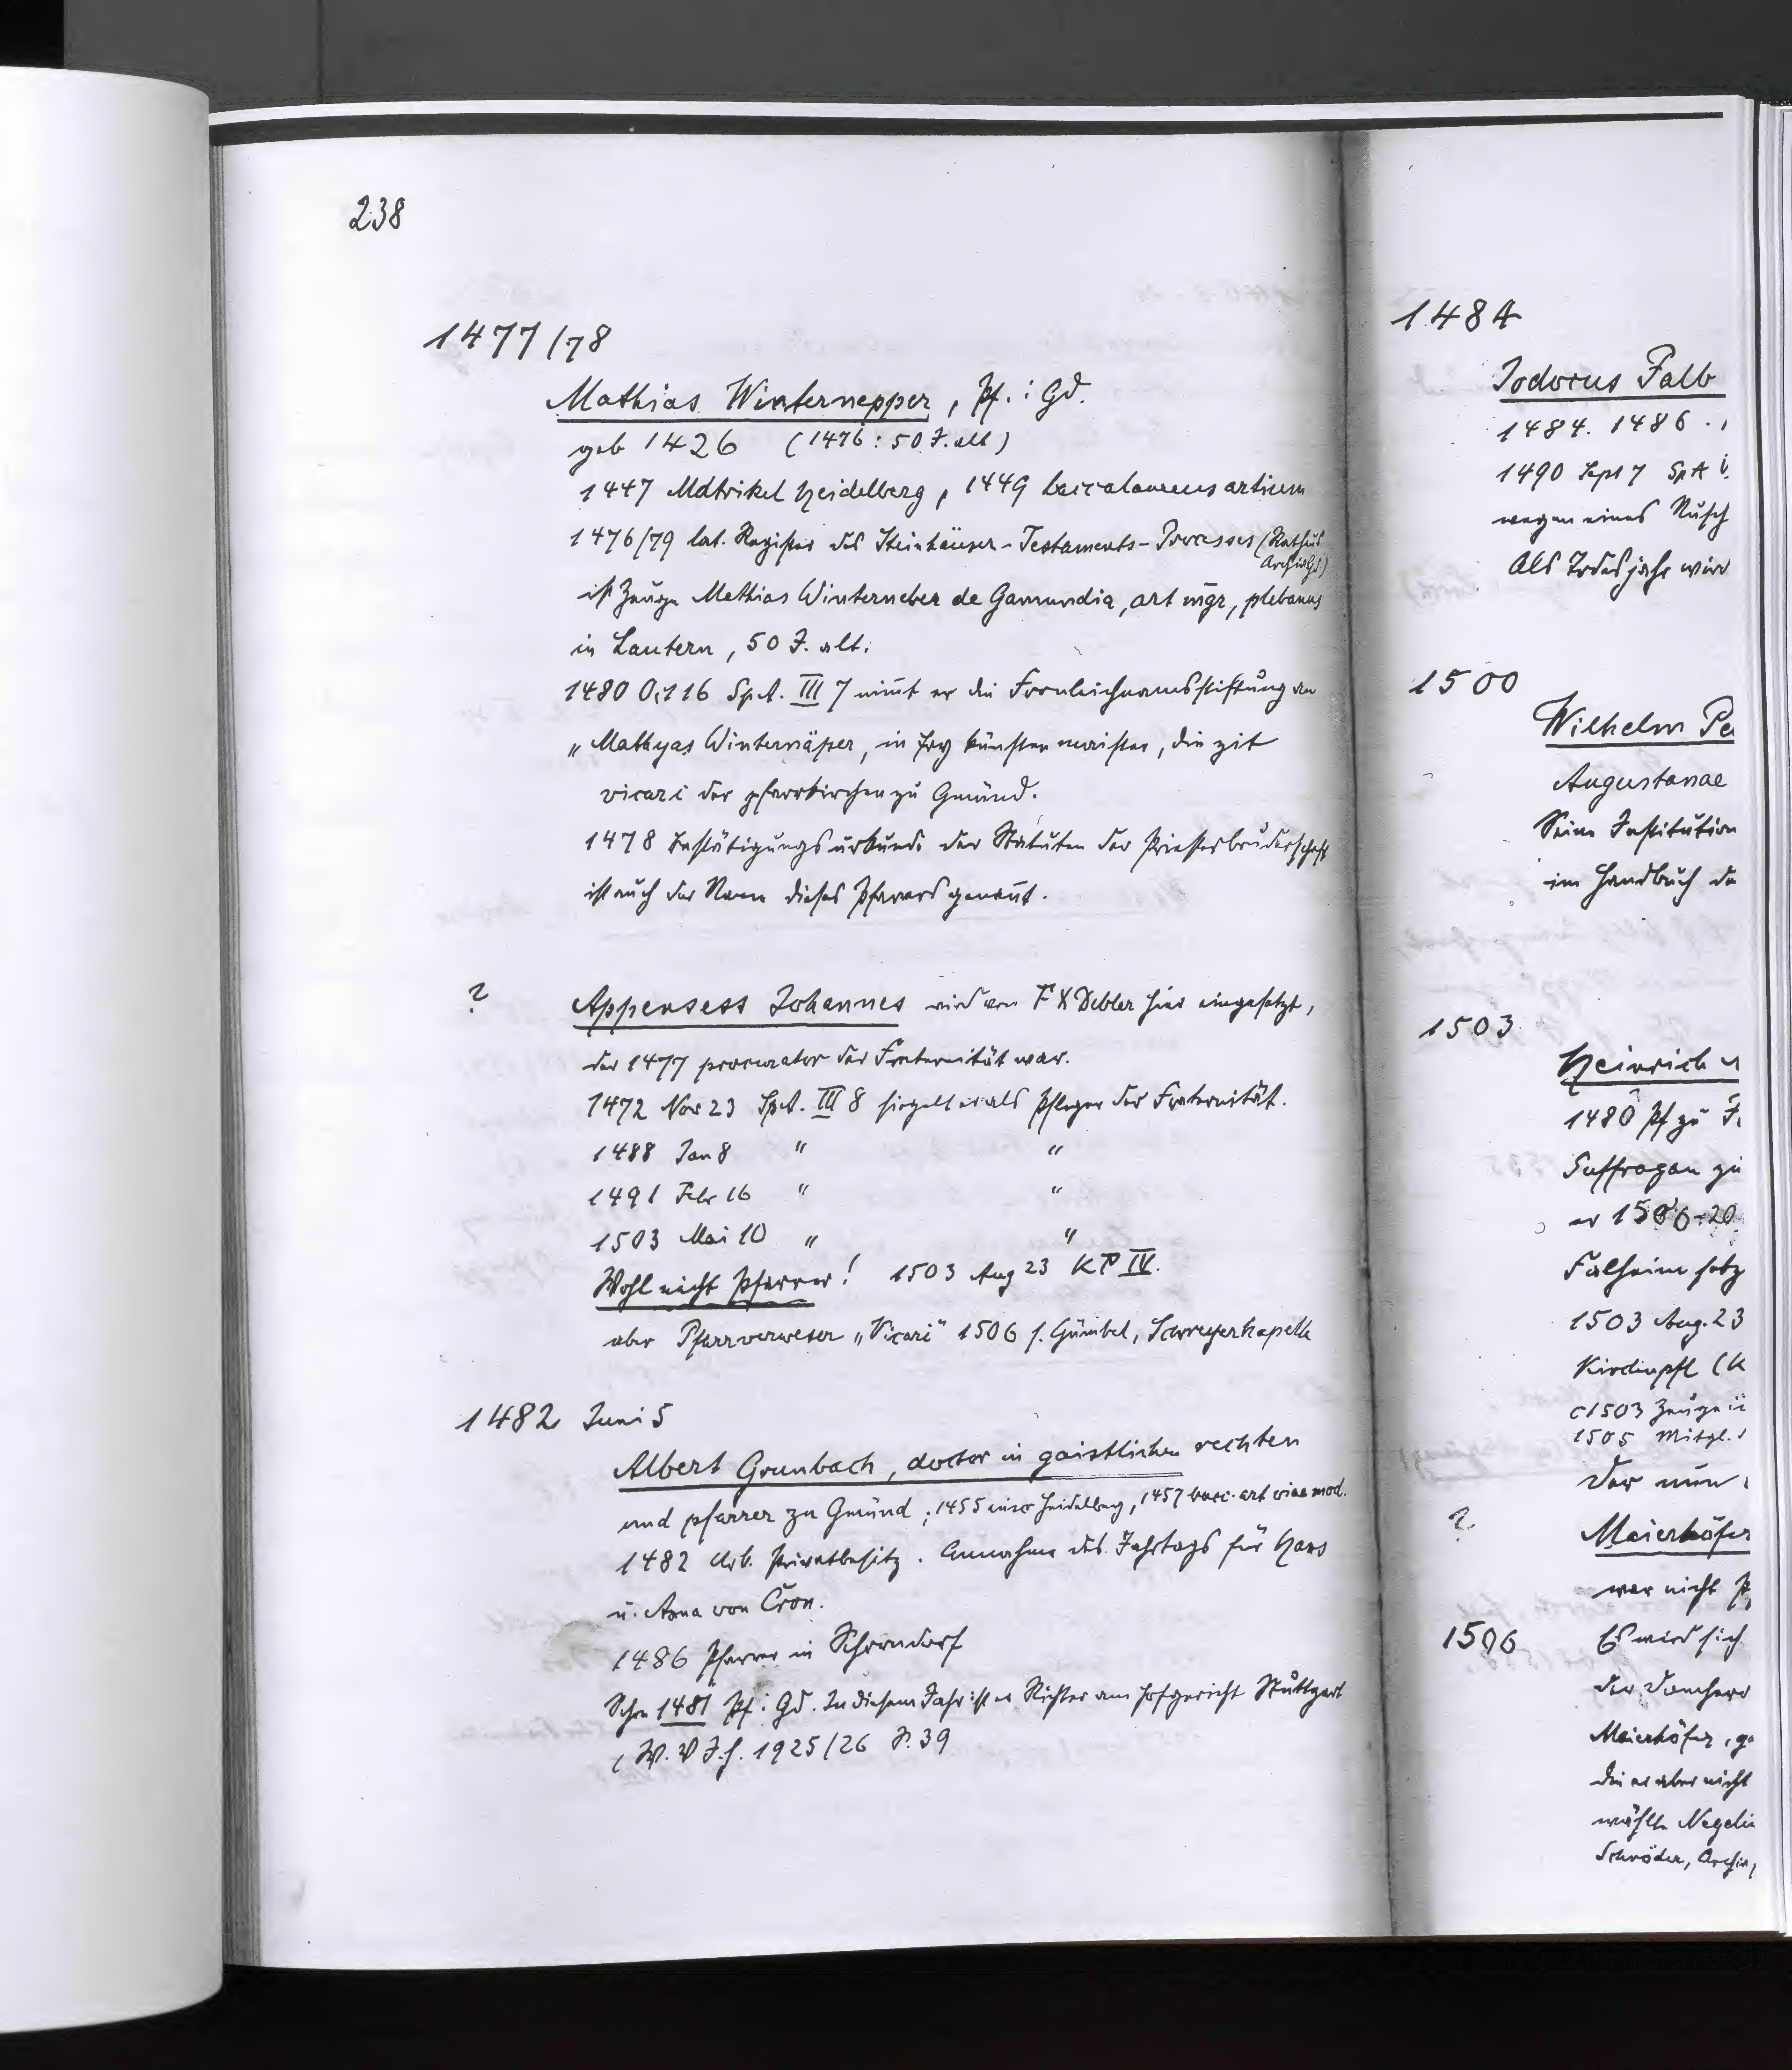 238
1477/78
Mathias Winternepper, Pf. i Gd.
geb 1426 (1476: 50 J. alt)
1447 Matrikel Heidelberg, 1449 baccalaureus artium
1476/79 lat. Register des Steinhäuser-Testaments-Processes (Rathaus
Archiv Gd)
ist Zeuge Mathias Winterneber de Gamundia, art mgr, plebanus
in Lautern, 50 J. alt.
1480 Oct 16 SpA. III 7 nimt er die Fronleichnamsstiftung an
„Mathyas Winternäper, in fry künsten maister, die zit
vicari der pfarrkirchen zu Gmünd.
1478 Bestätigungsurkunde der Statuten der Priesterbruderschaft
ist auch der Name dieses Pfarrers genant.
? Appensess Johannes wird von F X Debler hier eingesetzt,
der 1477 procurator der Fraternität war.
1472 Nov 23 SpA. III 8 siegelt er als Pfleger der Fraternität.
1488 Jan 8 " "
1491 Febr 16 " "
1503 Mai 10 " "
Wohl nicht Pfarrer! 1503 Aug 23 KP IV.
aber Pfarrverweser „Vicari" 1506 s. Gümbel, Schreyerkapelle
1482 Juni 5
Albert Grunbach, doctor in gaistlichen rechten
und pfarrer zu Gmünd; 1455 inscr Heidelberg, 1457 bacc. art viae mod.
1482 Urk. Privatbesitz. Annahme des Jahrtags für Hans
u. Anna von Cron.
1486 Pfarrer in Schorndorf
Schon 1481 Pf. i Gd. In diesem Jahr ist er Richter am Hofgericht Stuttgart
(W. V J. H. 1925/26 S. 39
1484
Jodocus Falb
1484. 1486.,
1490 Sept 7 SpA
wegen eines
Als Todesjahr wird
1500
Wilhelm Pe
Augustanae
Seine Institution
im Handbuch de
1503
Heinrich
1480 Pf zu
Suffragan zu
er 1506-20
1503 Aug. 23
Kirchenpfl (K
c1503 Zeuge
1505 Mitgl.
Der nun
? Maierhöfer
war nicht P
1506 Es wird sich
der Domherr
Maierhöfer, ge
die er aber nicht
wählte Negelin
Schröder, Archiv,